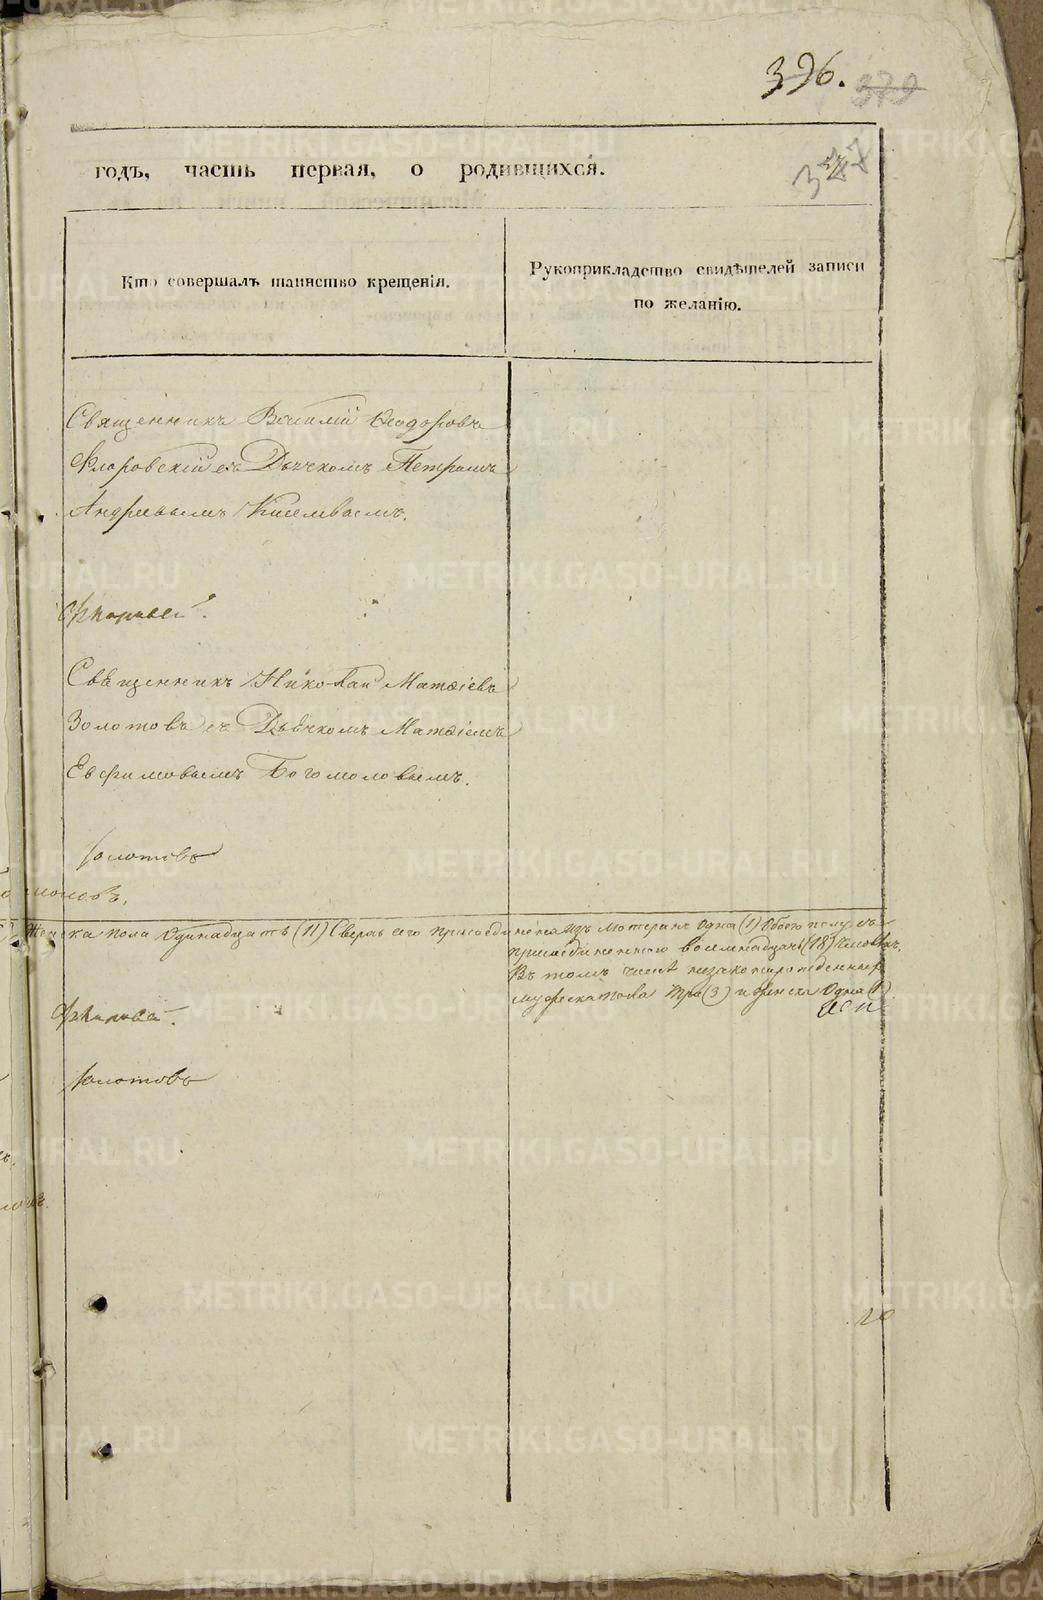 396. 379
годъ, часть первая, о родившихся.
Кто совершалъ таинство крещенія.
Рукоприкладство свидѣтелей записи
по желанію.
Священникъ Василій Ѳеодоровъ
Флоровскій съ Дьячкомъ Петромъ
Андреевымъ Киселевымъ.
Священникъ Николай Матѳіевъ
Золотовъ съ Дьячкомъ Матѳіемъ
Евфимовымъ Богомоловымъ.
Золотовъ
Женска пола Одинадцать (11) Сверхъ сего присоединена изъ Лютеранъ Одна (1) Обоего полу съ
присоединенною восемнадцать (18) человѣкъ.
Въ томъ числѣ незаконнорожденныхъ
мужеска пола три (3) и женска Одна (1)
Золотовъ
METRIKI.GASO-URAL.RU